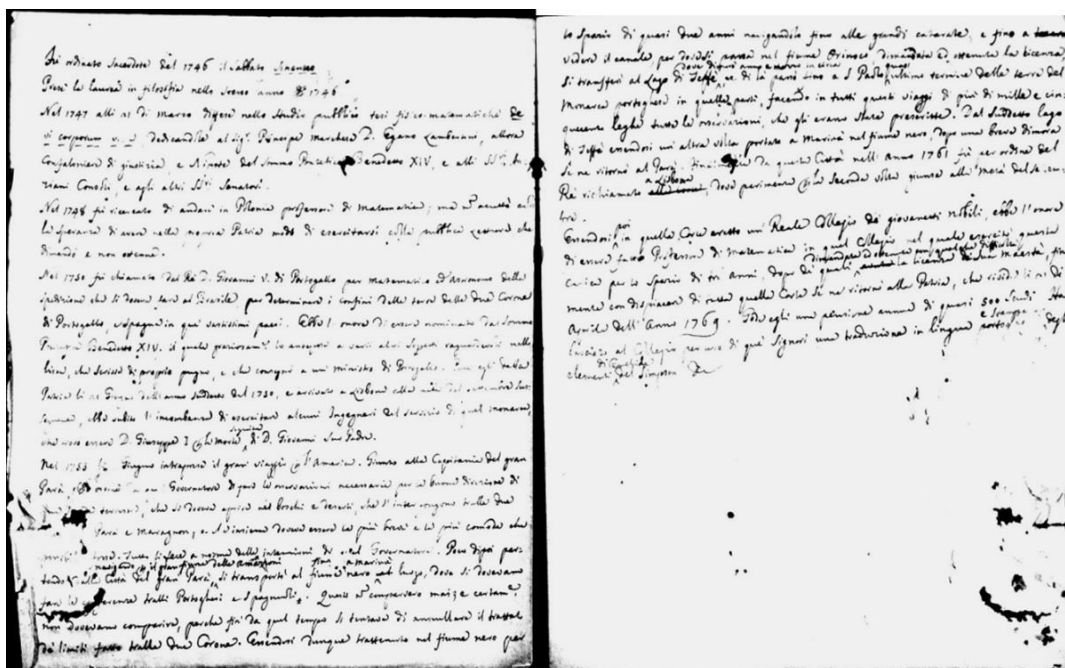 Fù ordinato Sacerdote del 1746 il Sabbato Sizientes
Prese la laurea in filosofia nello stesso anno 1746
Nel 1747 alli 21 di Marzo difese nello Studio pubblico tesi fisico-matematiche de
vi corporum dedicandole al Sig. Principe Marchese D. Egano Lambertini, allora
Confaloniere di giustizia, e Nipote del Sommo Pontefice Benedetto XIV, e alli SS.ri
Consoli, e agli altri SS.ri Senatori.
Nel 1748 fù ricercato di andare in Polonia professore di matematica; ma nō accettò
la speranza di avere nella propria Patria modo di esercitarsi colla pubblica Lettura che
dimandò e non ottenne.
Nel 1750 fù chiamato dal Rè D. Giovanni V. di Portogallo per matematico ed Astronomo della
spedizione che si dovea fare al Brasile per determinare i confini delle terre delle due Corone
di Portogallo, e Spagna in que' vastissimi paesi. Ebbe l'onore di essere nominato dal Sommo
Pontefice Benedetto XIV. il quale graziosam.te lo antepose a varii altri Soggetti
lista, che scrisse di proprio pugno, e che consegnò a un ministro di Portogallo.
Patria li dell'anno suddetto del 1750, e arrivato a Lisbona alla metà del
ebbe subito l'incombenza di esercitare alcuni Ingegneri del servizio di quel monarca,
D. Giuseppe I morte seguita di D. Giovanni Suo Padre.
Nel 1753 Giugno intraprese il gran viaggio l'America. Giunto alla Capitania del gran
Parà, Governatore di fare le osservazioni necessarie per la buona direzione di
che si dovea aprire nè boschi e deserti, che s'intercongono tralle due
Parà e Maragnon, e insieme dovea essere la più breve e la più comoda che
Tutto si fece a norma delle intenzioni di Governatore. Poco dipoi par-
navigando il gran fiume delle Amazzoni fino a marina
alla Città del gran Parà, si trasportò al fiume nero al luogo, dove si doveano
fare le conferenze tralli Portoghesi e Spagnoli. Questi nō comparvero mai, e certam.te
non doveano comparire, perche fin da quel tempo si tentava di annullare il trattato
de' limiti fatto tralle due Corone. Essendosi dunque trattenuto nel fiume nero per
lo spazio di quasi due anni navigandolo fino alle grandi catarate, e fino a
vedere il canale, per dove si passa nel fiume Orinoco, dimandata ed ottenuta la licenza,
dove dimorò anno e mezzo in circa
Si transferì al Lago di Teffè, e di là passò fino a S. Paolo ultimo termine delle terre del
Monarca portoghese in quelle parti, facendo in tutti questi viaggi di più di mille e cin-
quecento leghe tutte le osservazioni, che gli erano state prescritte. Dal Suddetto Lago
di Teffè essendosi un'altra volta portato a Mariuà nel fiume nero, dopo una breve dimora
se ne ritornò al Parà. Finalmente da questa Città nell'Anno 1761 fù per ordine del
a Lisbona
Rè richiamato, dove parimente la seconda volta giunse alla metà del Settem-
bre.
poi
Essendosi in quella Corte eretto un Reale Collegio dei giovanetti nobili, ebbe l'onore
di essere fatto Professore di matematica in quel Collegio nel quale esercitò questa
dimandata ed ottenuta con qualche difficoltà
Carica per lo spazio di trè Anni, dopo dei quali la licenza da sua maestà, final-
mente con dispiacere di tutta quella Corte se ne ritornò alla Patria, che rivide li 21 di
Aprile dell'Anno 1769. Gode egli una pensione annua di quasi 500 Scudi. Ha
e stampa
lasciato al Collegio per uso di que' Signori una traduzione in lingua portoghese degli
di Euclide
elementi del Simpson